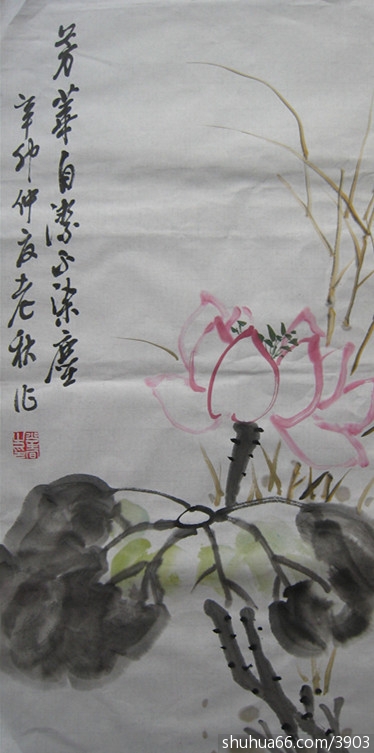 芳華自潔不染塵
辛卯仲夏老秋作
shuhua66.com/3903